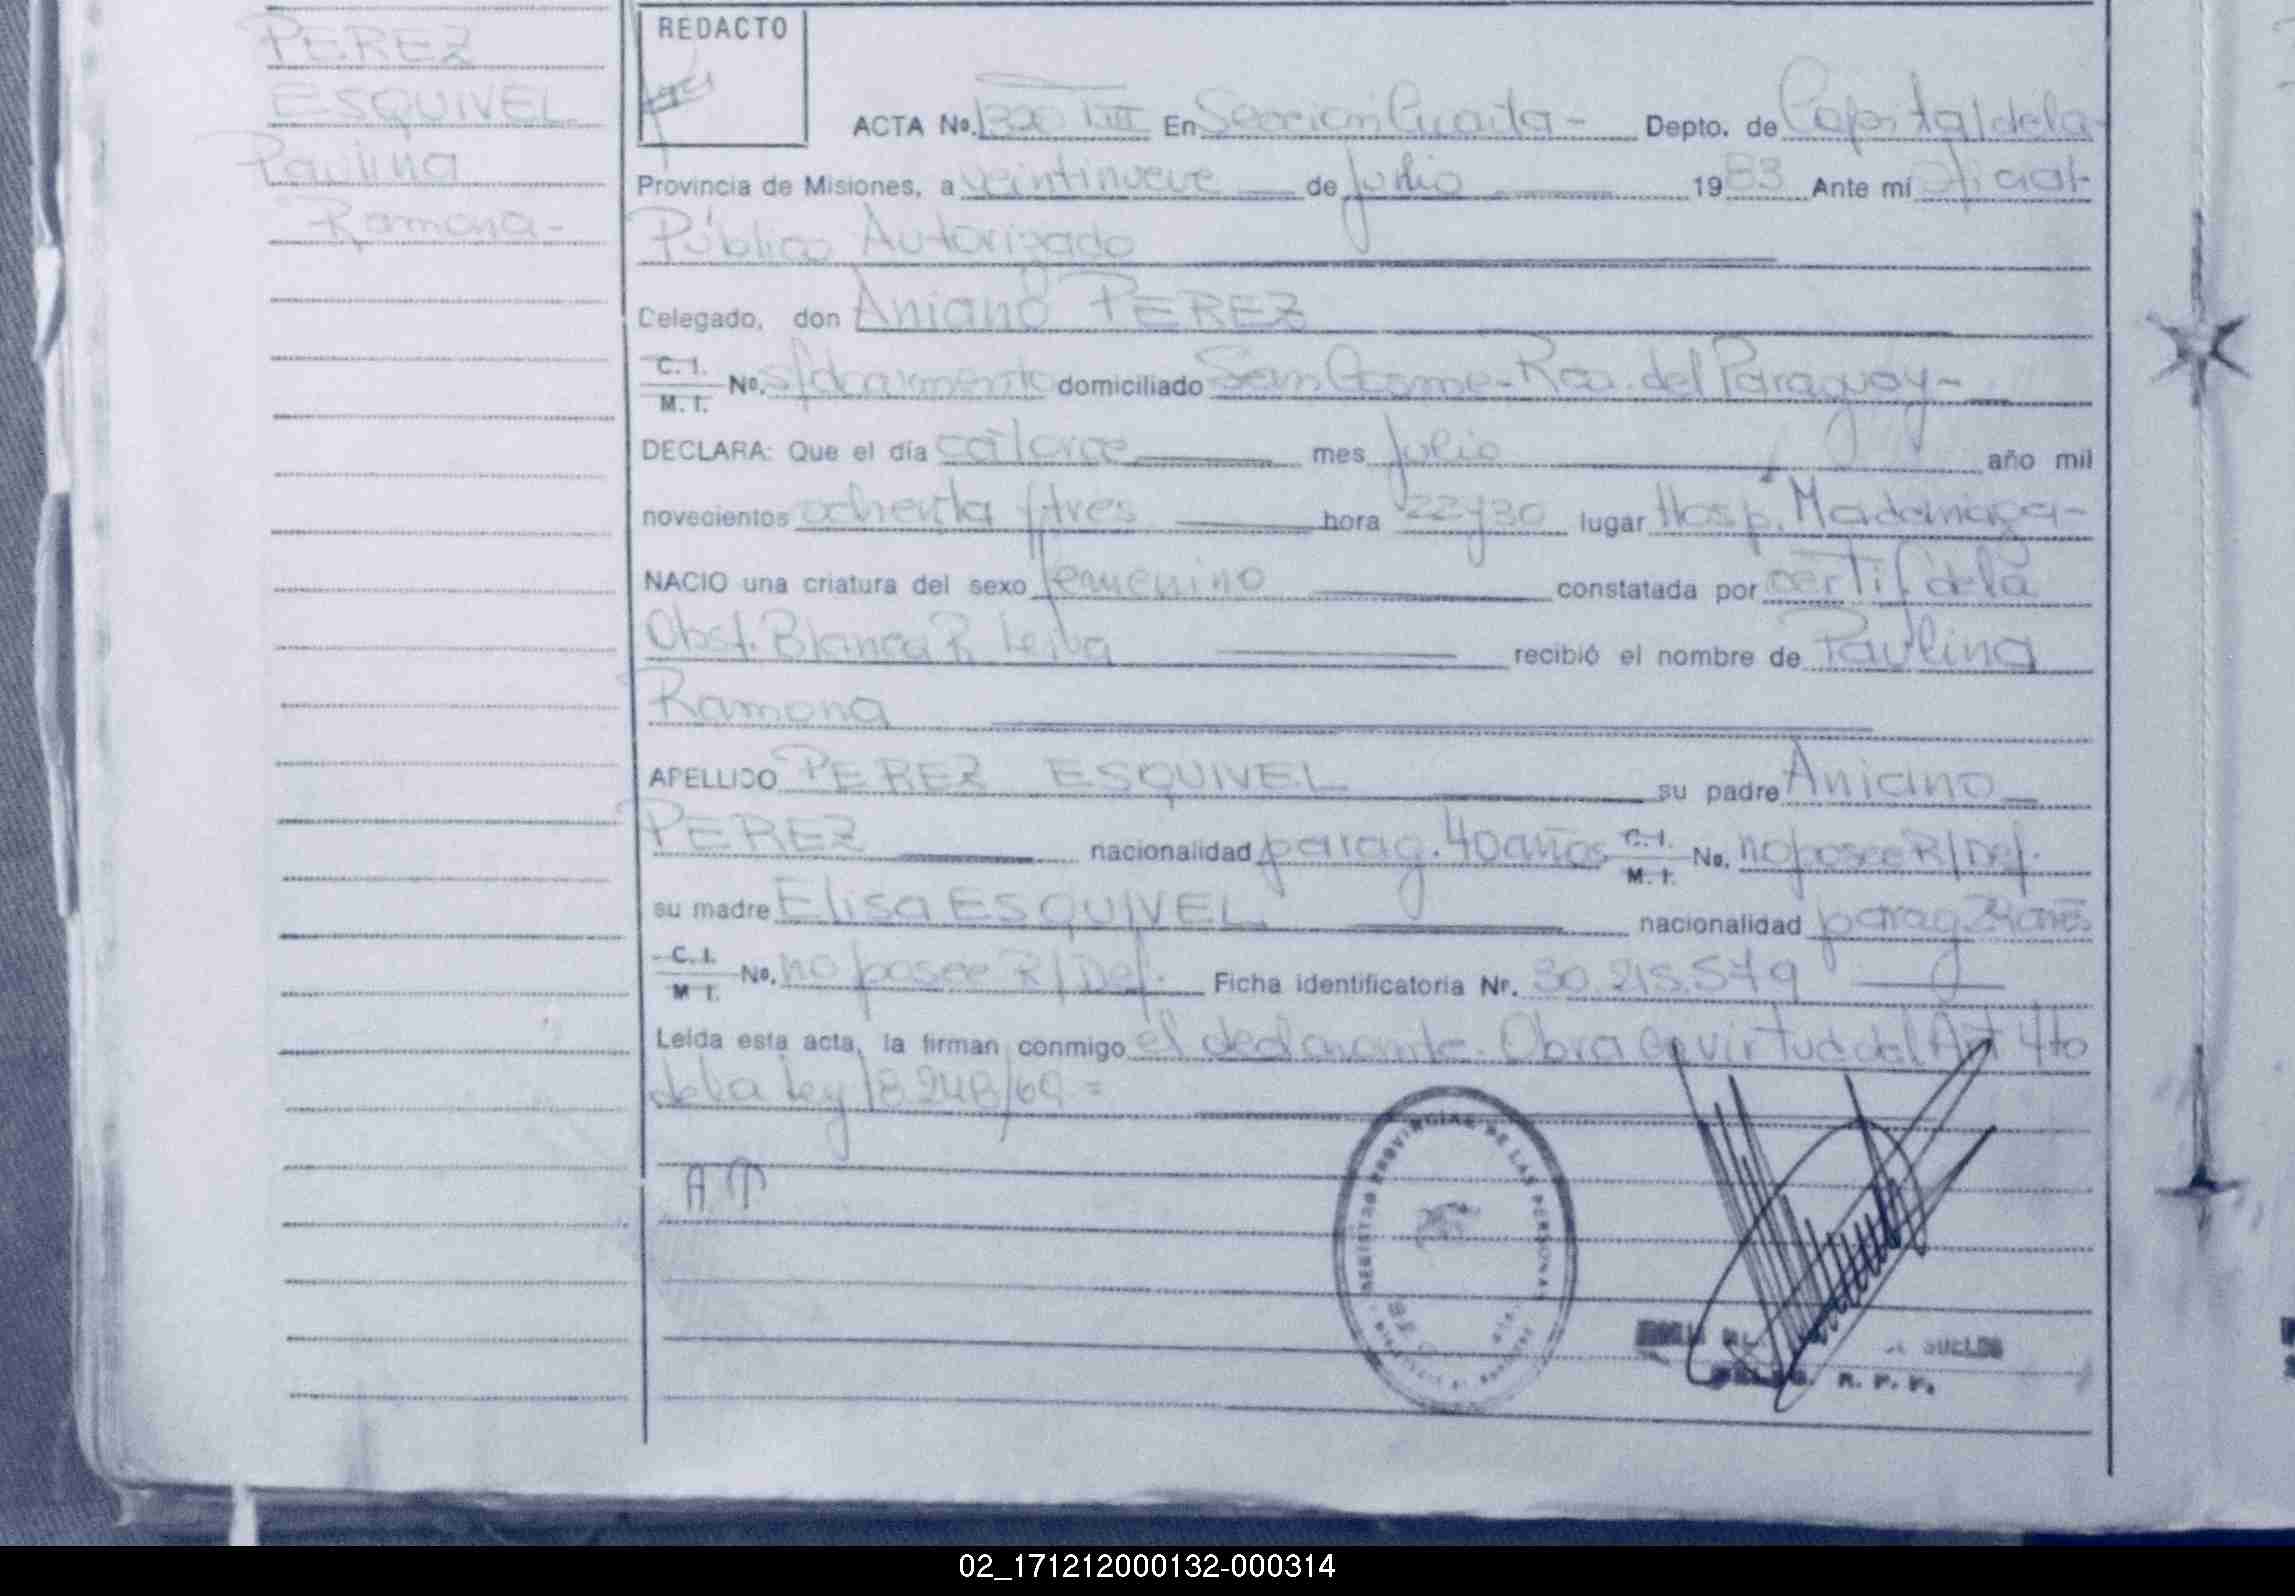 PEREZ
ESQUIVEL
Paulina
Ramona-
REDACTO
ACTA Nº. En Sección Cuarta - Depto. de Capital de la
Provincia de Misiones, a veintinueve de julio 1983 Ante mí Oficial
Público Autorizado
Delegado, don Aniano PEREZ
C. I.
M. I. Nº. s/documento domiciliado San Cosme-Rca. del Paraguay-
DECLARA: Que el día catorce mes julio año mil
novecientos ochenta y tres hora 22y30 lugar Hosp. Madariaga-
NACIO una criatura del sexo femenino constatada por certif de la
Obst. Blanca R. Leiva recibió el nombre de Paulina
Ramona
APELLIDO PEREZ ESQUIVEL su padre Aniano
PEREZ nacionalidad parag. 40 años C. I. M. I. Nº. no posee R/Def.
su madre Elisa ESQUIVEL nacionalidad parag años
C. I.
M. I. Nº. no posee R/Def. Ficha identificatoria Nº. 30.215.579
Leída esta acta, la firman conmigo el declarante. Obra en virtud del Art 4to
de la Ley 18.248/69 =
REGISTRO PROVINCIAL DE LAS PERSONAS
R. P. P.
02_171212000132-000314